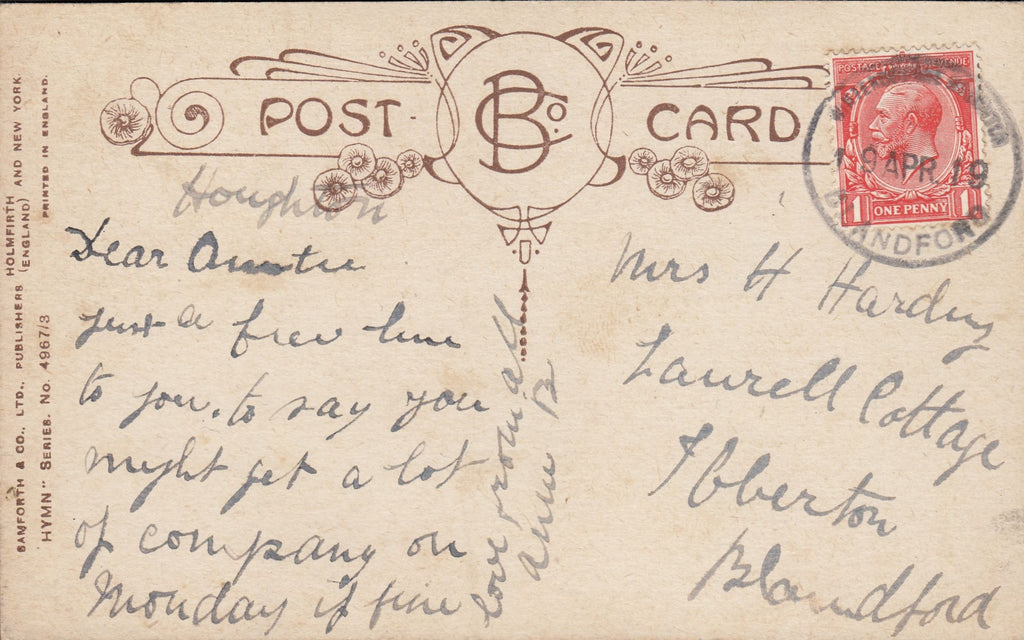 POST CARD
BCo.
BAMFORTH & CO., LTD., PUBLISHERS HOLMFIRTH (ENGLAND) AND NEW YORK.
"HYMN" SERIES. NO. 4967/3 PRINTED IN ENGLAND.
Houghton
Dear Auntie
just a few line
to you, to say you
might get a lot
of company on
Monday if fine
love from all
Annie B
POSTAGE REVENUE
1 ONE PENNY 1
9 APR 19
BLANDFORD
Mrs H Hardy
Laurell Cottage
Ibberton
Blandford